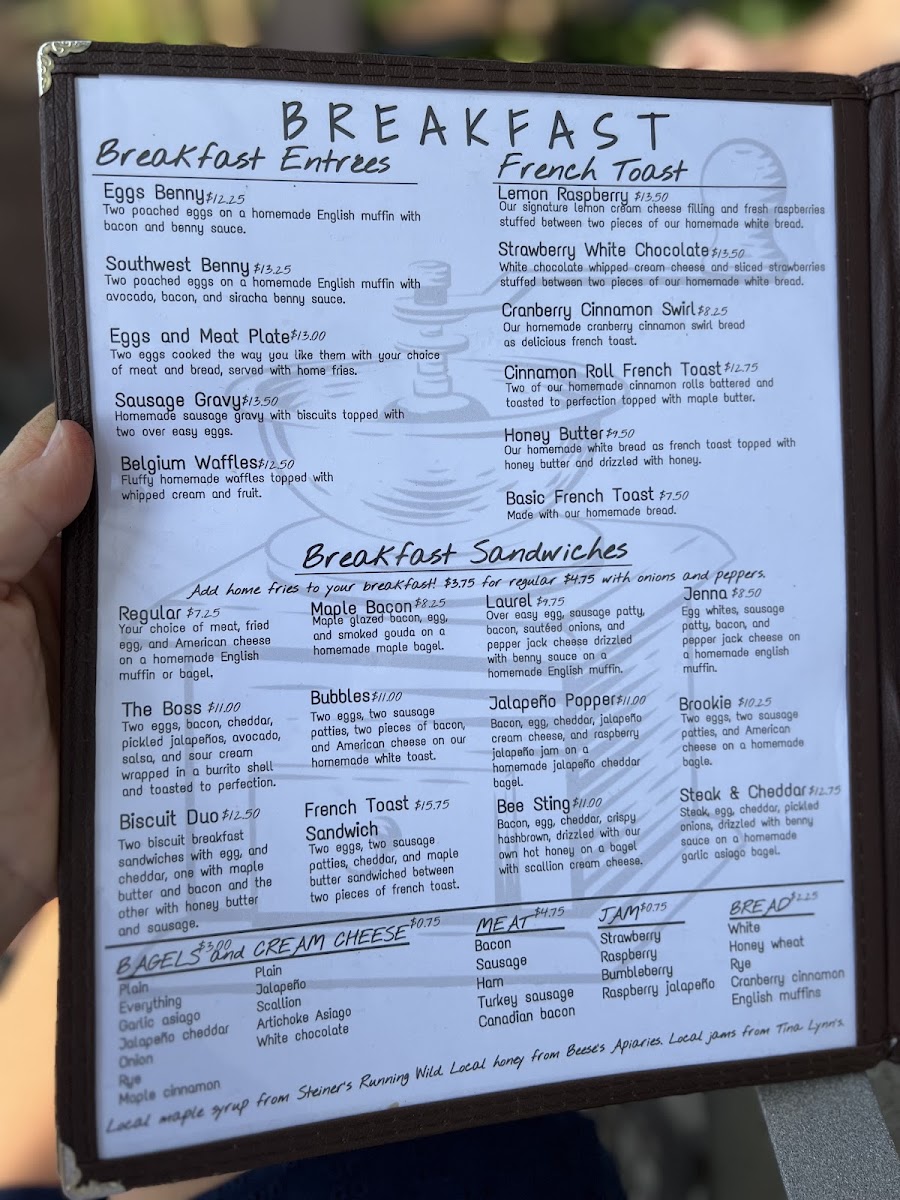 BREAKFAST
Breakfast Entrees
Eggs Benny $12.25
Two poached eggs on a homemade English muffin with
bacon and benny sauce.
Southwest Benny $13.25
Two poached eggs on a homemade English muffin with
avocado, bacon, and siracha benny sauce.
Eggs and Meat Plate $13.00
Two eggs cooked the way you like them with your choice
of meat and bread, served with home fries.
Sausage Gravy $13.50
Homemade sausage gravy with biscuits topped with
two over easy eggs.
Belgium Waffles $12.50
Fluffy homemade waffles topped with
whipped cream and fruit.
French Toast
Lemon Raspberry $13.50
Our signature lemon cream cheese filling and fresh raspberries
stuffed between two pieces of our homemade white bread.
Strawberry White Chocolate $13.50
White chocolate whipped cream cheese and sliced strawberries
stuffed between two pieces of our homemade white bread.
Cranberry Cinnamon Swirl $8.25
Our homemade cranberry cinnamon swirl bread
as delicious french toast.
Cinnamon Roll French Toast $12.75
Two of our homemade cinnamon rolls battered and
toasted to perfection topped with maple butter.
Honey Butter $9.50
Our homemade white bread as french toast topped with
honey butter and drizzled with honey.
Basic French Toast $7.50
Made with our homemade bread.
Breakfast Sandwiches
Add home fries to your breakfast! $3.75 for regular $4.75 with onions and peppers.
Regular $7.25
Your choice of meat, fried
egg, and American cheese
on a homemade English
muffin or bagel.
Maple Bacon $8.25
Maple glazed bacon, egg,
and smoked gouda on a
homemade maple bagel.
Laurel $9.75
Over easy egg, sausage patty,
bacon, sautéed onions, and
pepper jack cheese drizzled
with benny sauce on a
homemade English muffin.
Jenna $8.50
Egg whites, sausage
patty, bacon, and
pepper jack cheese on
a homemade english
muffin.
The Boss $11.00
Two eggs, bacon, cheddar,
pickled jalapeños, avocado,
salsa, and sour cream
wrapped in a burrito shell
and toasted to perfection.
Bubbles $11.00
Two eggs, two sausage
patties, two pieces of bacon,
and American cheese on our
homemade white toast.
Jalapeño Popper $11.00
Bacon, egg, cheddar, jalapeño
cream cheese, and raspberry
jalapeño jam on a
homemade jalapeño cheddar
bagel.
Brookie $10.25
Two eggs, two sausage
patties, and American
cheese on a homemade
bagle.
Biscuit Duo $12.50
Two biscuit breakfast
sandwiches with egg, and
cheddar, one with maple
butter and bacon and the
other with honey butter
and sausage.
French Toast $15.75
Sandwich
Two eggs, two sausage
patties, cheddar, and maple
butter sandwiched between
two pieces of french toast.
Bee Sting $11.00
Bacon, egg, cheddar, crispy
hashbrown, drizzled with our
own hot honey on a bagel
with scallion cream cheese.
Steak & Cheddar $12.75
Steak, egg, cheddar, pickled
onions, drizzled with benny
sauce on a homemade
garlic asiago bagel.
BAGELS $3.00 and CREAM CHEESE $0.75
Plain
Everything
Garlic asiago
Jalapeño cheddar
Onion
Rye
Maple cinnamon
Plain
Jalapeño
Scallion
Artichoke Asiago
White chocolate
MEAT $4.75
Bacon
Sausage
Ham
Turkey sausage
Canadian bacon
JAM $0.75
Strawberry
Raspberry
Bumbleberry
Raspberry jalapeño
BREAD $2.25
White
Honey wheat
Rye
Cranberry cinnamon
English muffins
Local maple syrup from Steiner's Running Wild. Local honey from Beese's Apiaries. Local jams from Tina Lynn's.